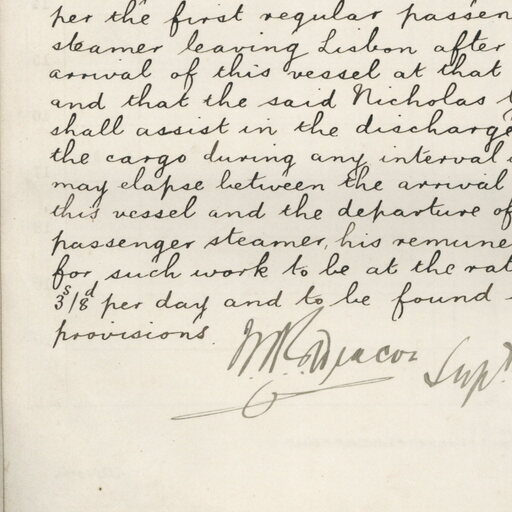 per the first regular passen
steamer leaving Lisbon after
arrival of this vessel at that
and that the said Nicholas
shall assist in the discharge
the cargo during any interval
may elapse between the arrival
this vessel and the departure of
passenger steamer, his remune
for such work to be at the rat
3s/8d per day and to be found
provisions.
Deacon Supt